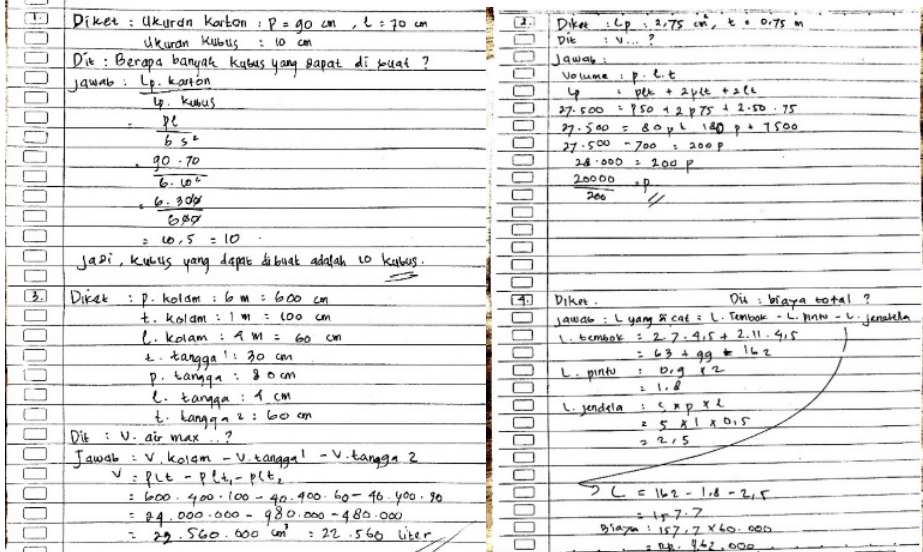 1.
Diket : Ukuran Karton : P = 90 cm, l = 70 cm
Ukuran Kubus : 10 cm
Dit : Berapa banyak kubus yang dapat di buat ?
Jawab : Lp. karton
Lp. kubus
= pl
6 s²
= 90 . 70
6. 10²
= 6.300
600
= 10,5 = 10
Jadi, kubus yang dapat dibuat adalah 10 kubus.
3.
Diket : p. kolam : 6 m = 600 cm
t. kolam : 1 m = 100 cm
l. kolam : 4 m = 60 cm
t. tangga 1 : 30 cm
p. tangga : 80 cm
l. tangga : 4 cm
t. tangga 2 : 60 cm
Dit : V. air max ..?
Jawab : V. kolam - V. tangga 1 - V. tangga 2
V = plt - plt₁ - plt₂
= 600 . 400 . 100 - 40 . 400 . 60 - 40 . 400 . 30
= 24 .000.000 - 980.000 - 480.000
= 22.560.000 cm³ = 22 .560 liter
2.
Diket : Lp = 2,75 cm², t = 0,75 m
Dit : V... ?
Jawab :
Volume = p. l. t
Lp = plt + 2plt + 2lt
27.500 = p50 + 2 p75 + 2.50 . 75
27.500 = 80p + 150 p + 7500
27.500 - 700 = 200p
20.000 = 200 p
20000 = p
200
4.
Diket. Dit : biaya total ?
Jawab : L yang di cat = L. Tembok - L. Pintu - L. jendela
L. tembok = 2.7.4,5 + 2.11.4,5
= 63 + 99 = 162
L. pintu = 0,9 x 2
= 1.8
L. jendela = 5 x p x l
= 5 x 1 x 0,5
= 2,5
L = 162 - 1,8 - 2,5
= 157.7
Biaya = 157,7 x 60.000
= Rp. 962.000